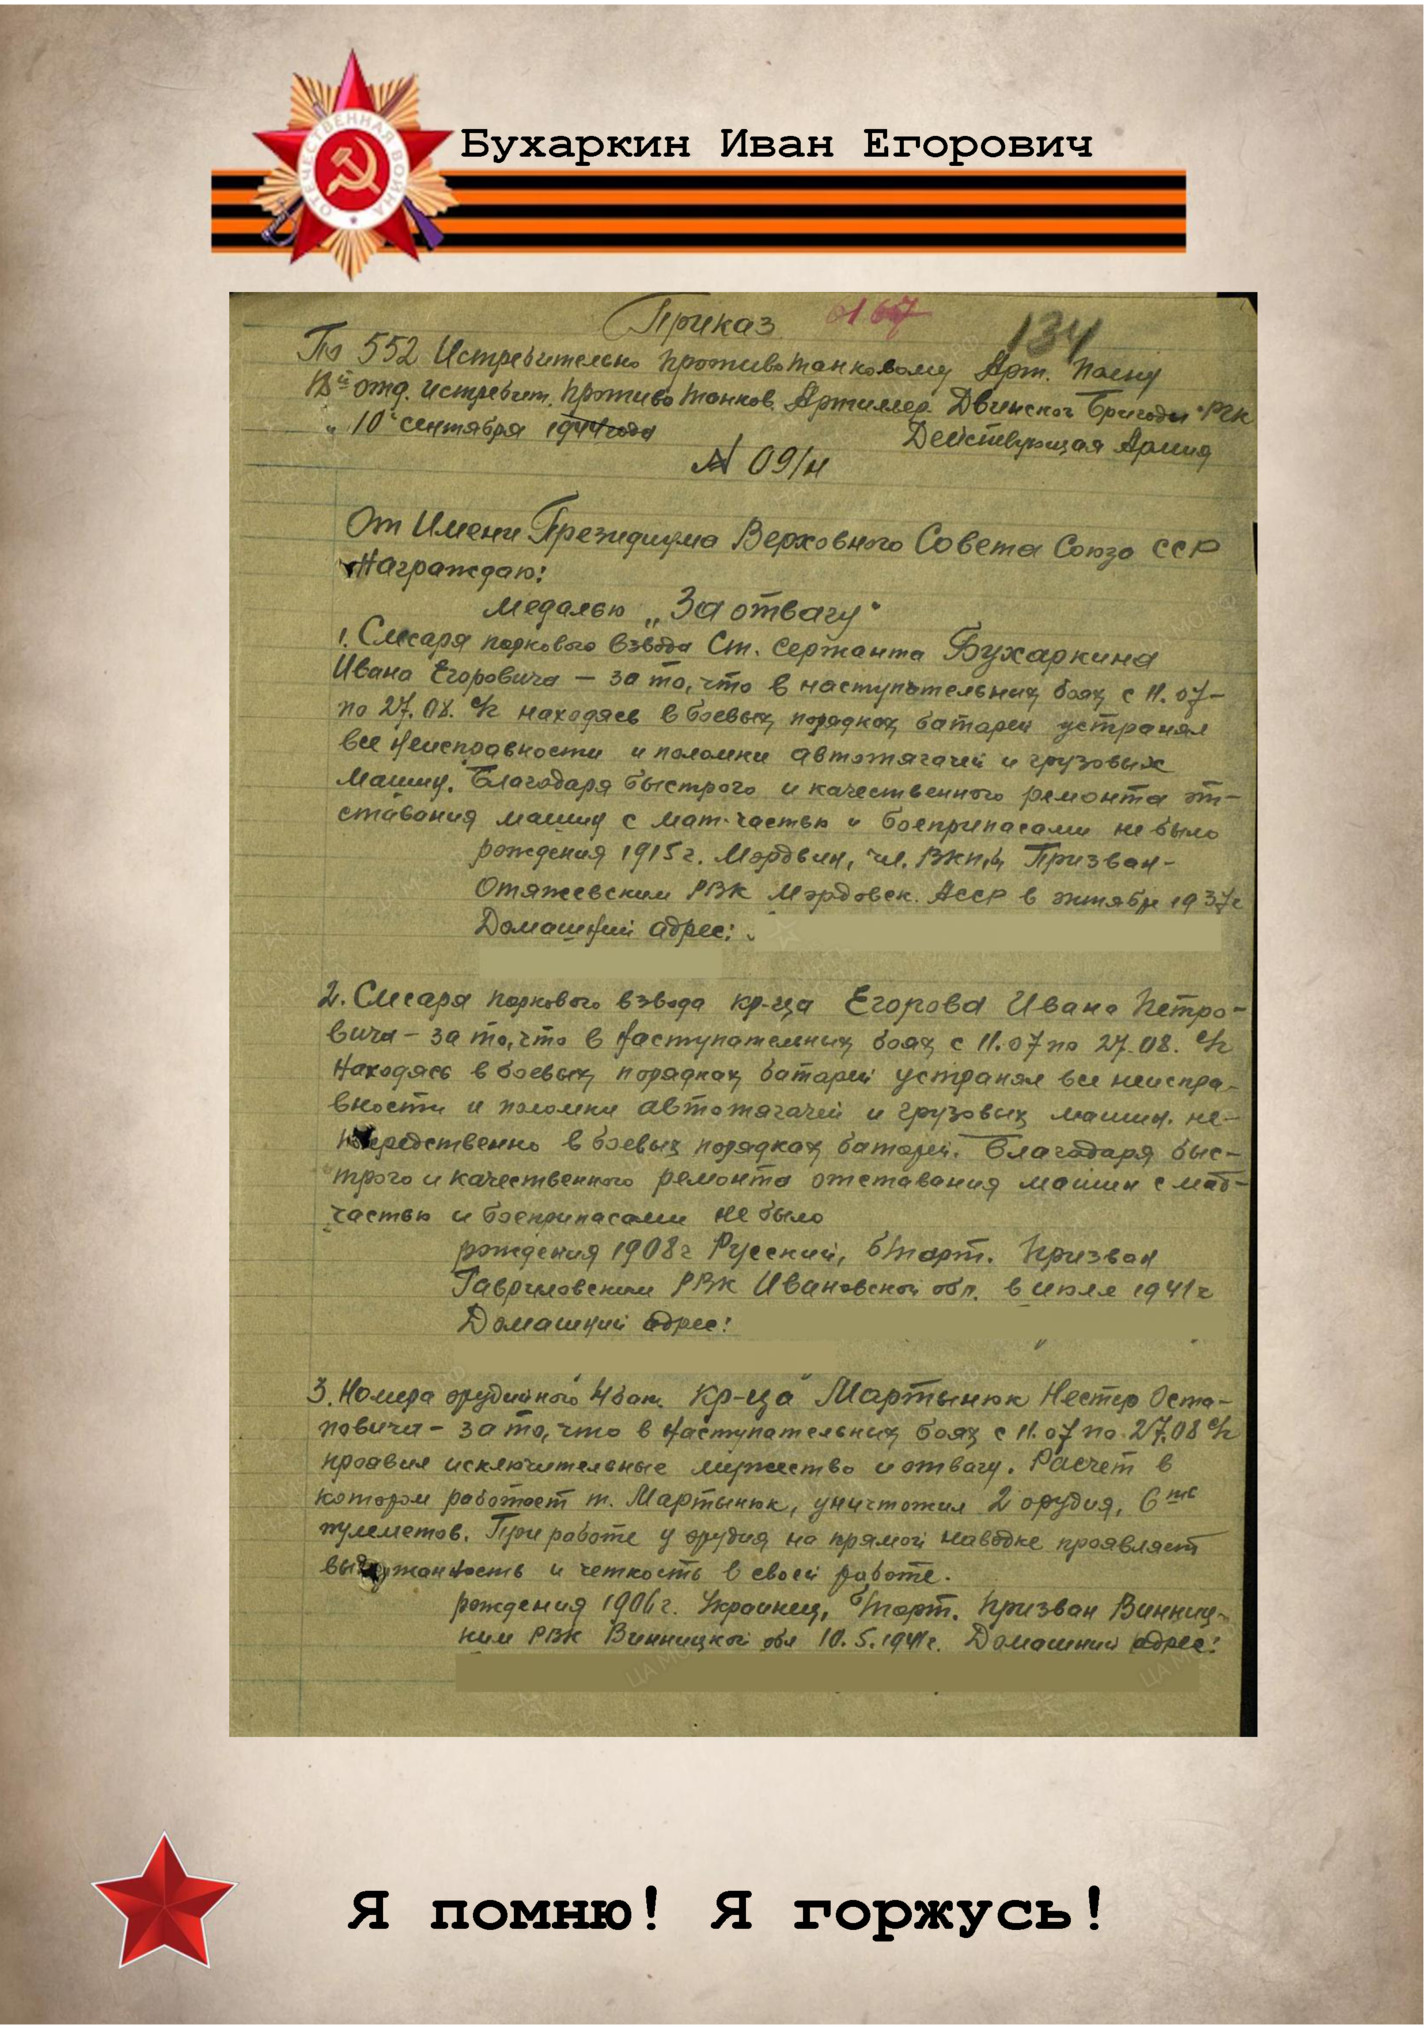 Бухаркин Иван Егорович
ОТЕЧЕСТВЕННАЯ ВОЙНА
Приказ
134
По 552 Истребительно противотанковому Арт. Полку
отд. истребит. противотанков. Артиллер. Двинской Бригады РГК
"10" сентября 1944 года Действующая Армия
№ 09/н
От Имени Президиума Верховного Совета Союза ССР
Награждаю:
медалью „За отвагу"
1. Слесаря паркового взвода Ст. сержанта Бухаркина
Ивана Егоровича – за то, что в наступательных боях с 11.07–
по 27.08. с/г находясь в боевых порядках батарей устранял
все неисправности и поломки автотягачей и грузовых
машин. Благодаря быстрого и качественного ремонта от-
ставания машин с мат-частью и боеприпасами не было
рождения 1915г. Мордвин, чл. ВКП,б, Призван-
Отяжевским РВК Мордовск. АССР в октябре 1937г
Домашний адрес:
2. Слесаря паркового взвода кр-ца Егорова Ивана Петро-
вича – за то, что в наступательных боях с 11.07 по 27.08. с/г
Находясь в боевых порядках батарей устранял все неиспра-
вности и поломки автотягачей и грузовых машин. не-
посредственно в боевых порядках батарей. Благодаря быс-
трого и качественного ремонта отставания машин с мат-
частью и боеприпасами не было
рождения 1908г Русский, б/парт. Призван
Гавриловским РВК Ивановской обл. в июле 1941г
Домашний адрес:
3. Номера орудийного 4 бат. Кр-ца Мартынюк Нестер Оста-
повича – за то, что в наступательных боях с 11.07 по 27.08 с/г
проявил исключительные мужество и отвагу. Расчет в
котором работает т. Мартынюк, уничтожил 2 орудия, 6 шт
пулеметов. При работе у орудия на прямой наводке проявляет
выдержанность и четкость в своей работе.
рождения 1906г. Украинец, б/парт. Призван Винниц-
ким РВК Винницкой обл 10.5.1941г. Домашний адрес:
Я помню! Я горжусь!